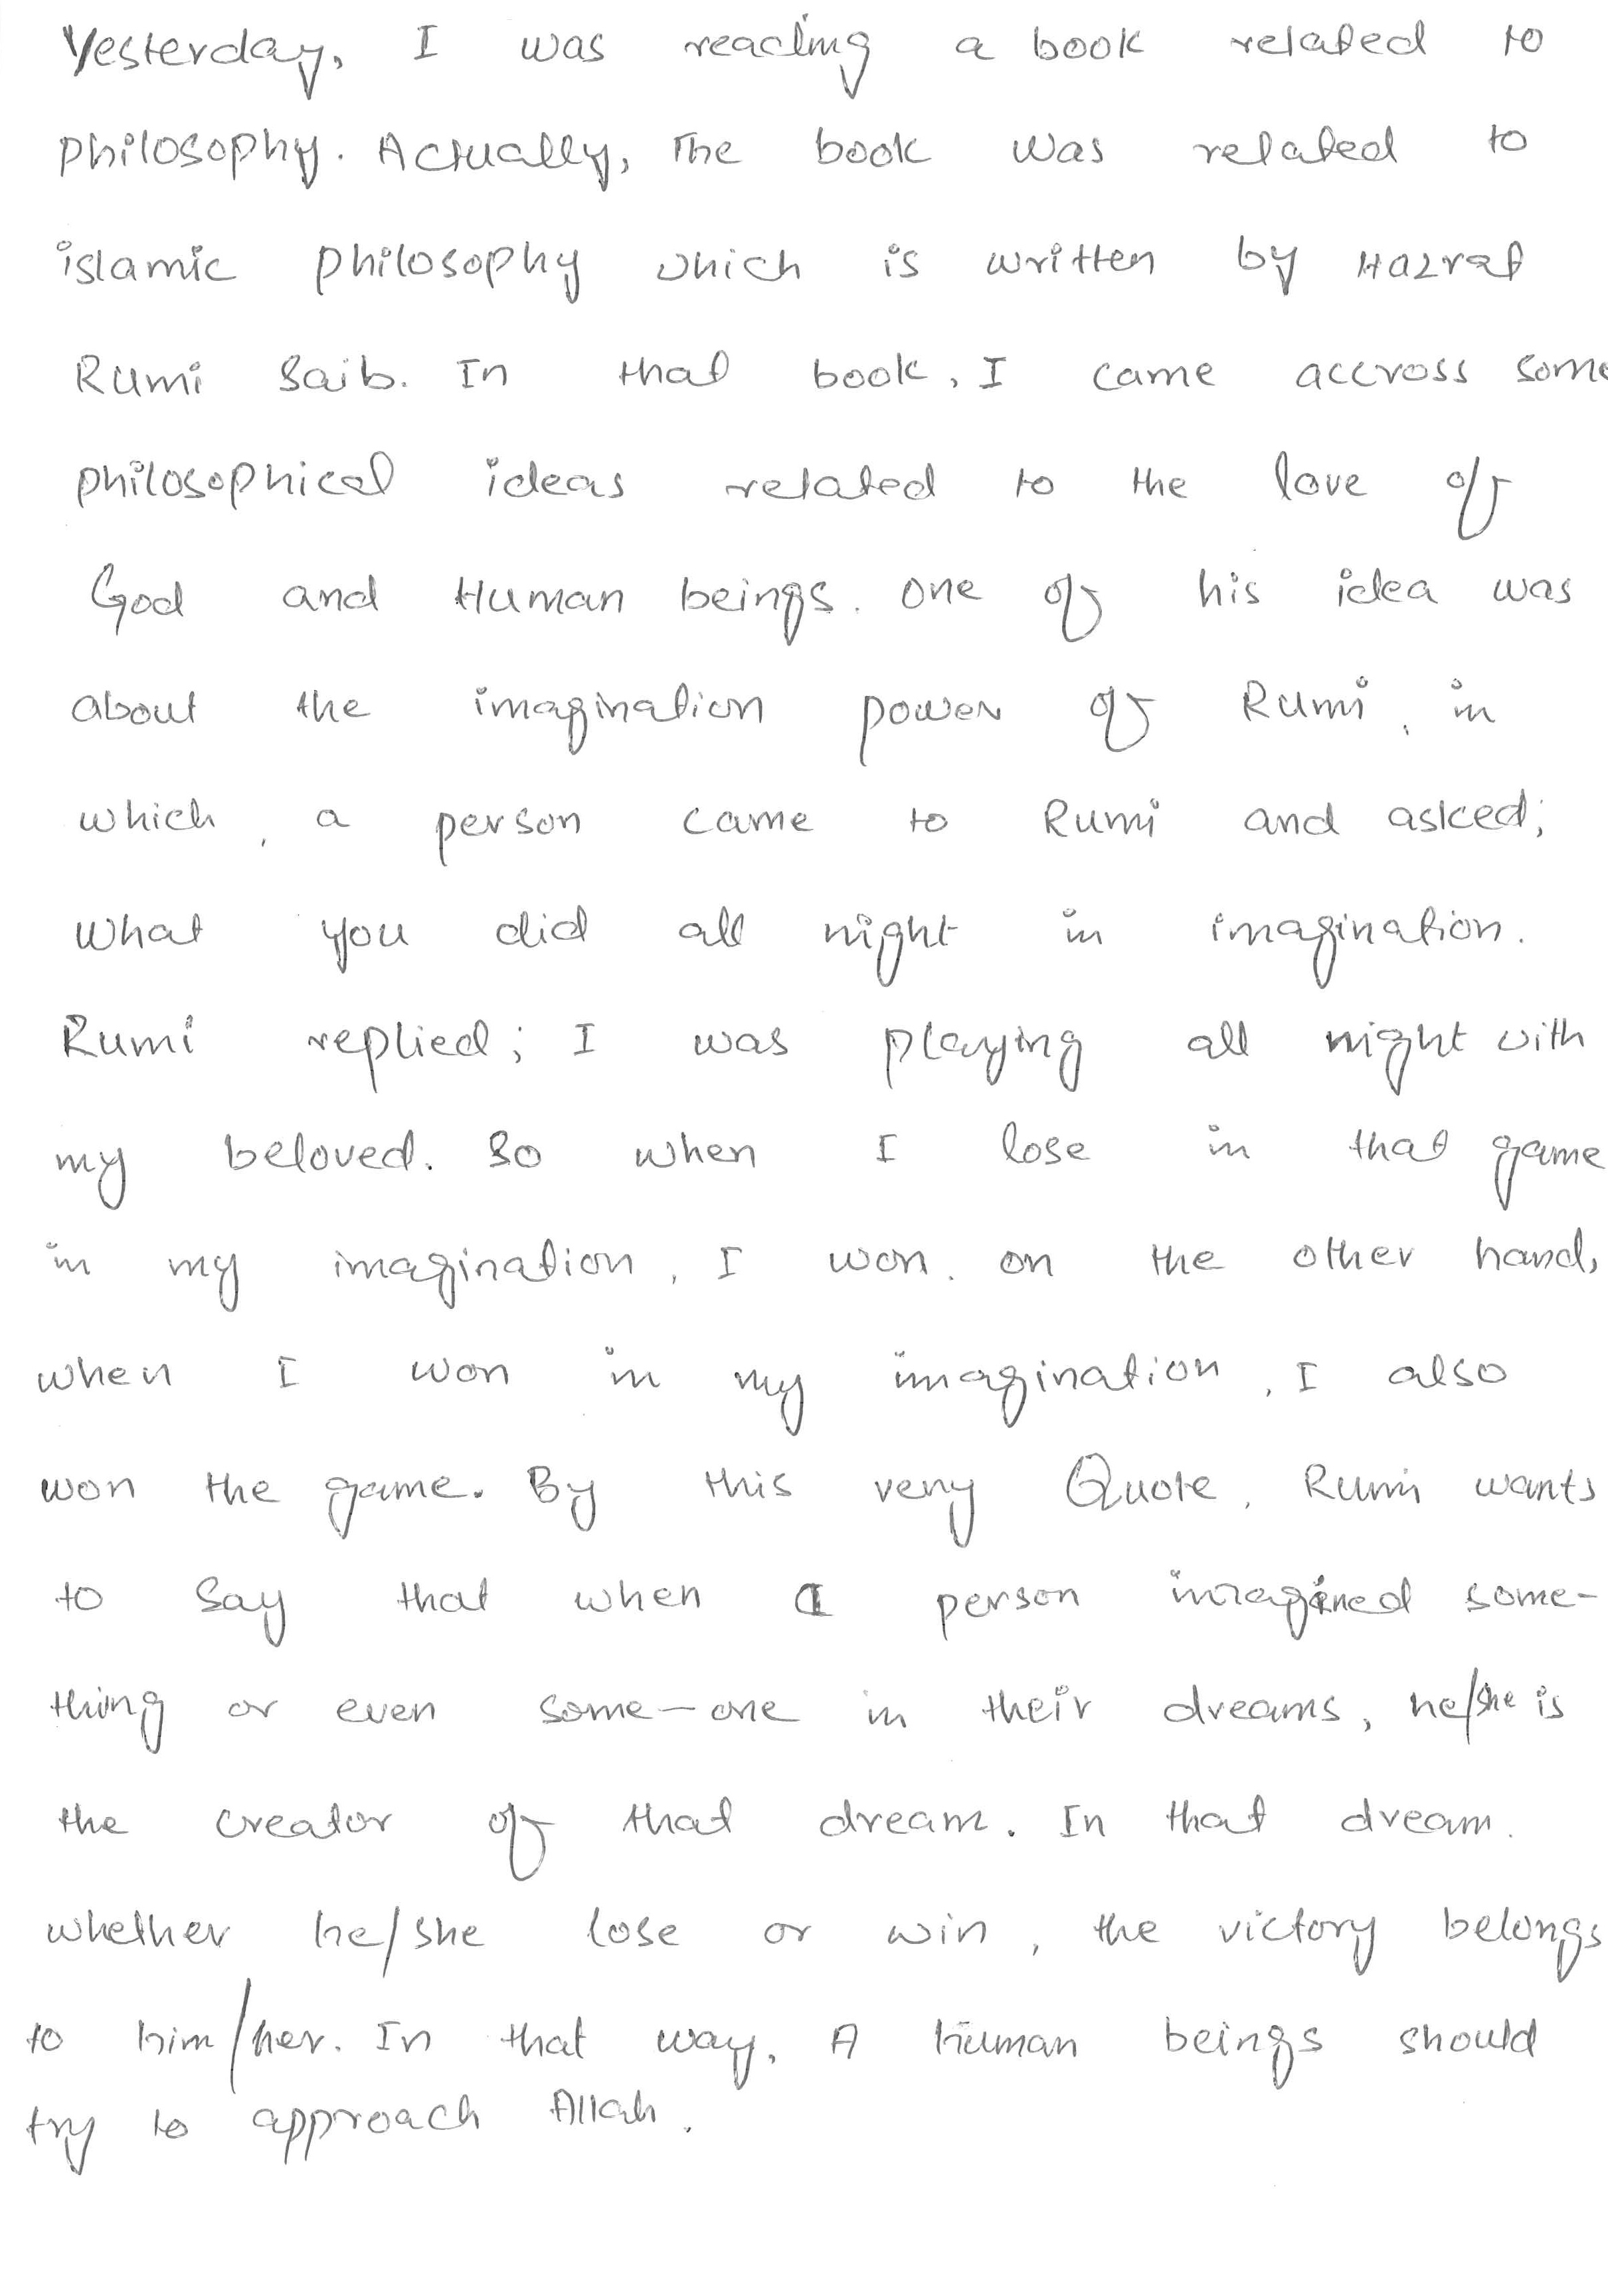 Yesterday, I was reading a book related to
philosophy. Actually, The book was related to
islamic philosophy which is written by Hazrat
Rumi Saib. In that book, I came accross some
philosophical ideas related to the love of
God and Human beings. One of his idea was
about the imagination power of Rumi, in
which, a person came to Rumi and asked;
what you did all night in imagination.
Rumi replied; I was playing all night with
my beloved. So when I lose in that game
in my imagination, I won. on the other hand,
when I won in my imagination, I also
won the game. By this very Quote, Rumi wants
to say that when a person imagined some-
thing or even some-one in their dreams, he/she is
the creator of that dream. In that dream.
whether he/she lose or win, the victory belongs
to him/her. In that way, A human beings should
try to approach Allah.